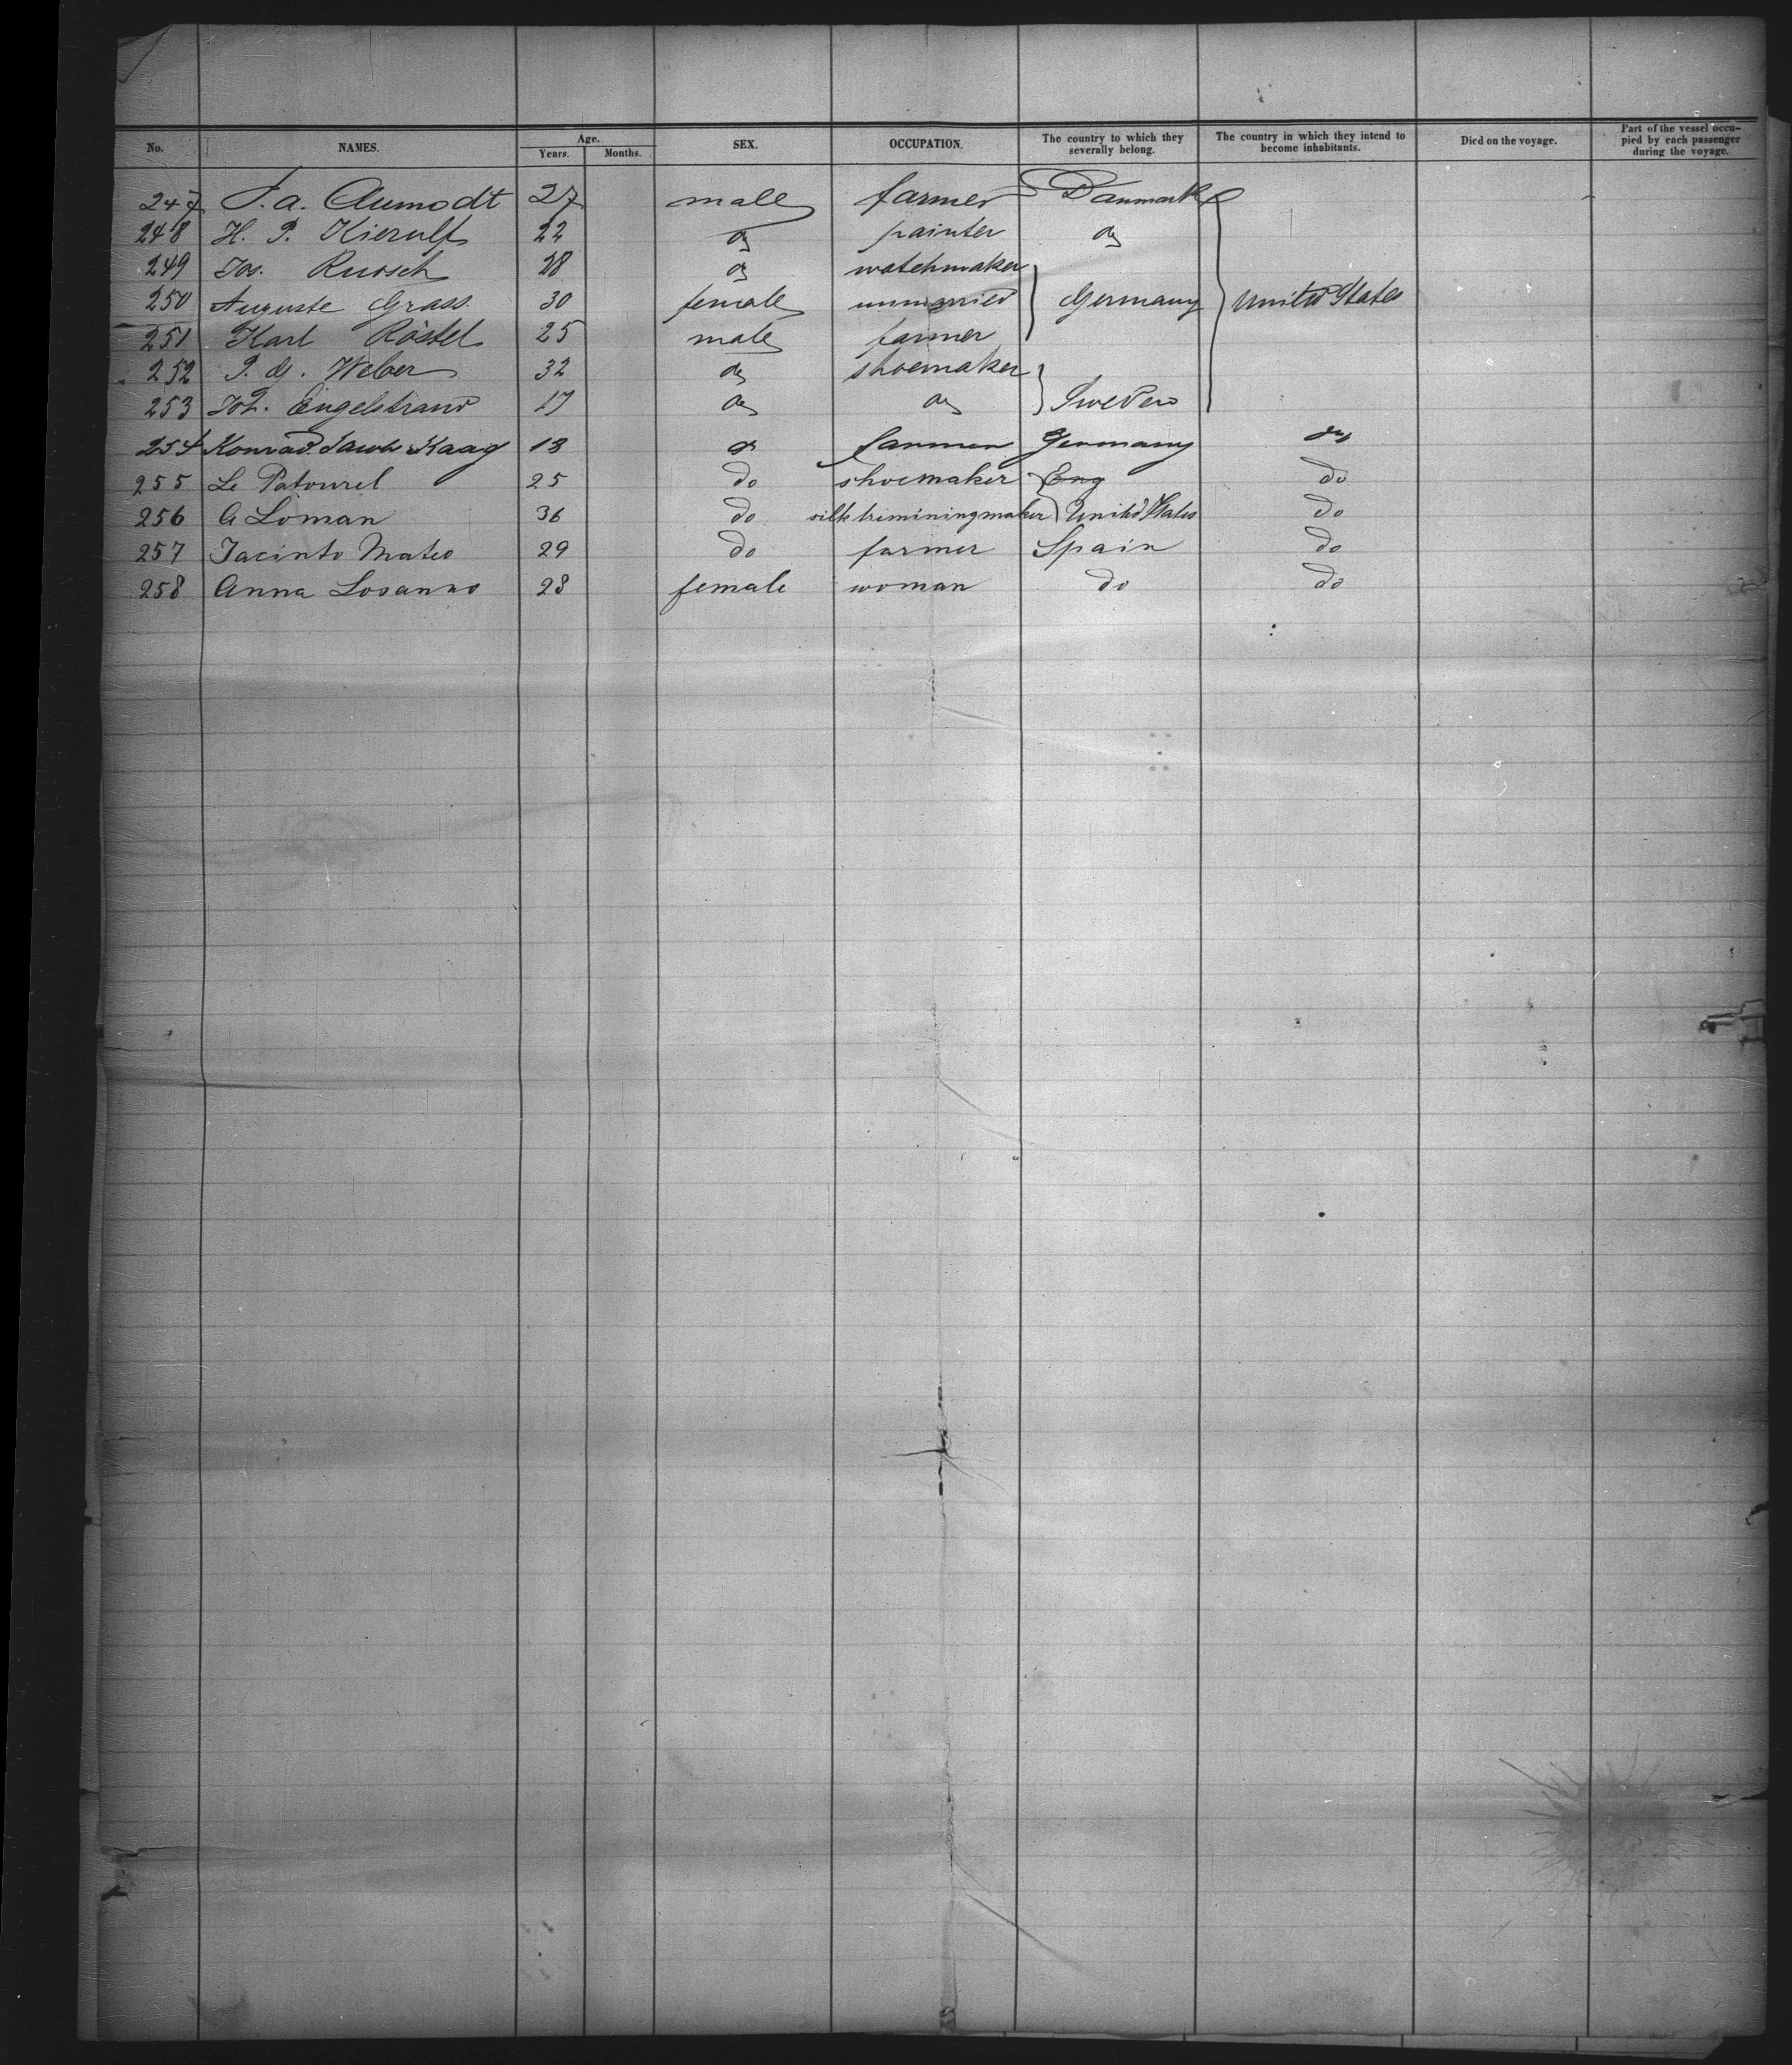 No. NAMES. Age. Years. Months. SEX. OCCUPATION. The country to which they severally belong. The country in which they intend to become inhabitants. Died on the voyage. Part of the vessel occupied by each passenger during the voyage.
247 J. a. Aumodt 27 male farmer Danmark
248 H. P. Kierulf 22 do painter do
249 Jos. Ruosch 28 do watchmaker
250 Auguste Grass 30 female unmarried Germany United States
251 Karl Röstel 25 male farmer
252 P. G. Weber 32 do shoemaker
253 Joh. Engelstrand 17 do do Sweden
254 Konrad Jacob Kaag 18 do farmer Germany do
255 Le Patourel 25 do shoemaker Eng do
256 A Loman 36 do silk triminingmaker United States do
257 Jacinto Mateo 29 do farmer Spain do
258 Anna Losanno 28 female woman do do